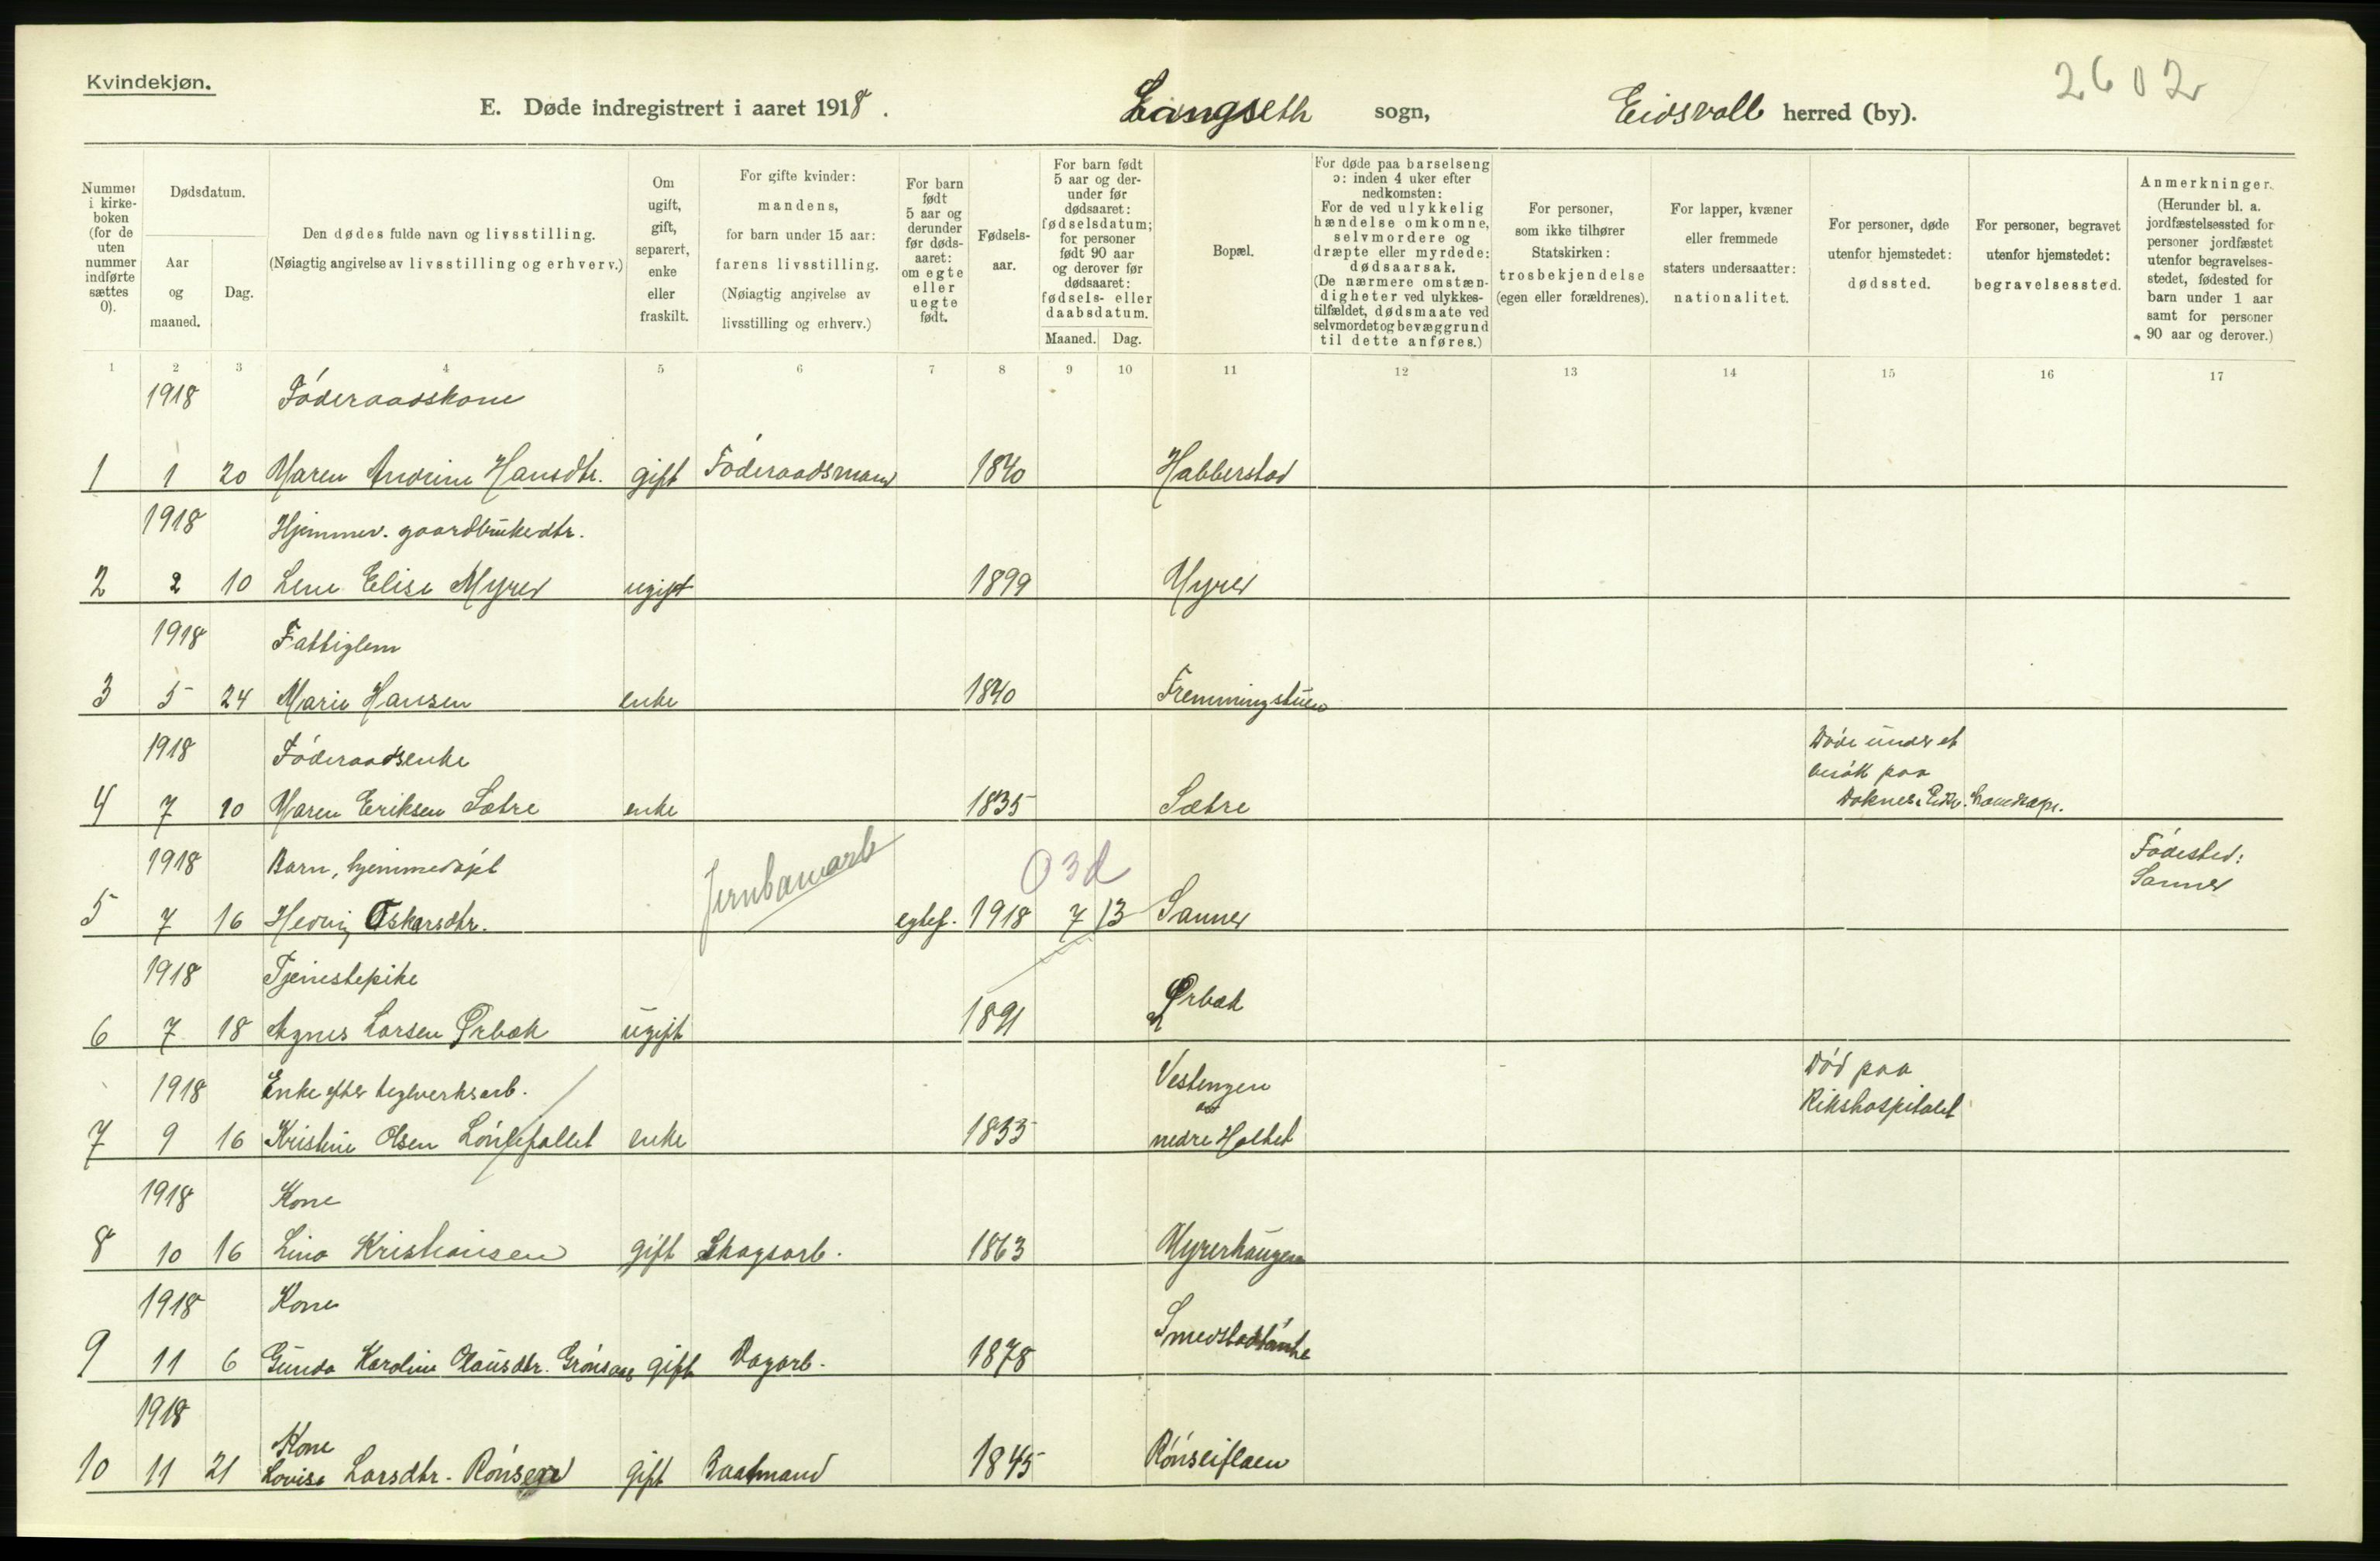 Kvindekjøn.
2602
E. Døde indregistrert i aaret 1918. Langseth sogn, Eidsvoll herred (by).
Nummer i kirkeboken (for de uten nummer indførte sættes 0).
Dødsdatum.
Aar og maaned.
Dag.
Den dødes fulde navn og livsstilling.
(Nøiagtig angivelse av livsstilling og erhverv.)
Om ugift, gift, separert, enke eller fraskilt.
For gifte kvinder: mandens, for barn under 15 aar: farens livsstilling. (Nøiagtig angivelse av livsstilling og erhverv.)
For barn født 5 aar og derunder før dødsaaret: om egte eller uegte født.
Fødselsaar.
For barn født 5 aar og derunder før dødsaaret: fødselsdatum; for personer født 90 aar og derover før dødsaaret: fødsels- eller daabsdatum.
Maaned. Dag.
Bopæl.
For døde paa barselseng ɔ: inden 4 uker efter nedkomsten: For de ved ulykkelig hændelse omkomne, selvmordere og dræpte eller myrdede: dødsaarsak. (De nærmere omstændigheter ved ulykkestilfældet, dødsmaate ved selvmordet og bevæggrund til dette anføres.)
For personer, som ikke tilhører Statskirken: trosbekjendelse (egen eller forældrenes).
For lapper, kvæner eller fremmede staters undersaatter: nationalitet.
For personer, døde utenfor hjemstedet: dødssted.
For personer, begravet utenfor hjemstedet: begravelsessted.
Anmerkninger. (Herunder bl. a. jordfæstelsessted for personer jordfæstet utenfor begravelsesstedet, fødested for barn under 1 aar samt for personer 90 aar og derover.)
1 2 3 4 5 6 7 8 9 10 11 12 13 14 15 16 17
1918 Føderaadskone
1 1 20 Maren Andrine Hansdtr. gift Føderaadsmand 1840 Habberstad
1918 Hjemmev. gaardbrukerdtr.
2 2 10 Lene Elise Myrer ugift 1899 Myrer
1918 Fattiglem
3 5 24 Marie Hansen enke 1840 Fremmingstuen
1918 Føderaadsenke Døde under et
besøk paa
4 7 10 Maren Eriksen Sætre enke 1835 Sætre Doknes
1918 Barn, hjemmedøpt Jernbanearb 03d Fødested:
Sanner
5 7 16 Hedvig Oskarsdtr. egtef. 1918 7 13 Sanner
1918 Tjenestepike
6 7 18 Agnes Larsen Ørbæk ugift 1891 Ørbæk
1918 Enke efter teglverksarb. Vestengen Død paa
Rikshospitalet
7 9 16 Kristine Olsen enke 1833 nedre Holtet
1918 Kone
8 10 16 Lina Kristiansen gift Skogsarb. 1863 Myrerhaugen
1918 Kone
9 11 6 Gunda Karoline Olausdtr. gift Dagarb. 1878
1918
Kone
10 11 21 Lovise Larsdtr. Rønsen gift Baatmand 1845 Rønseiflaen